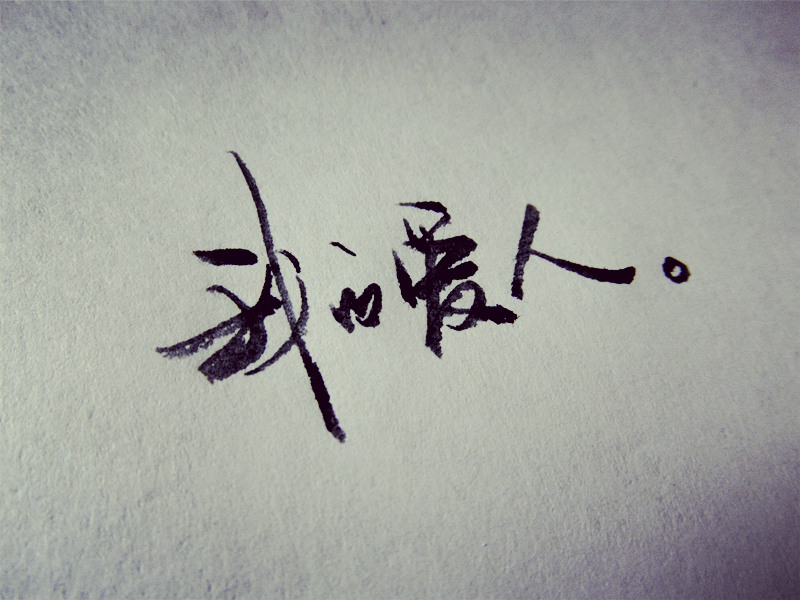 我的爱人。